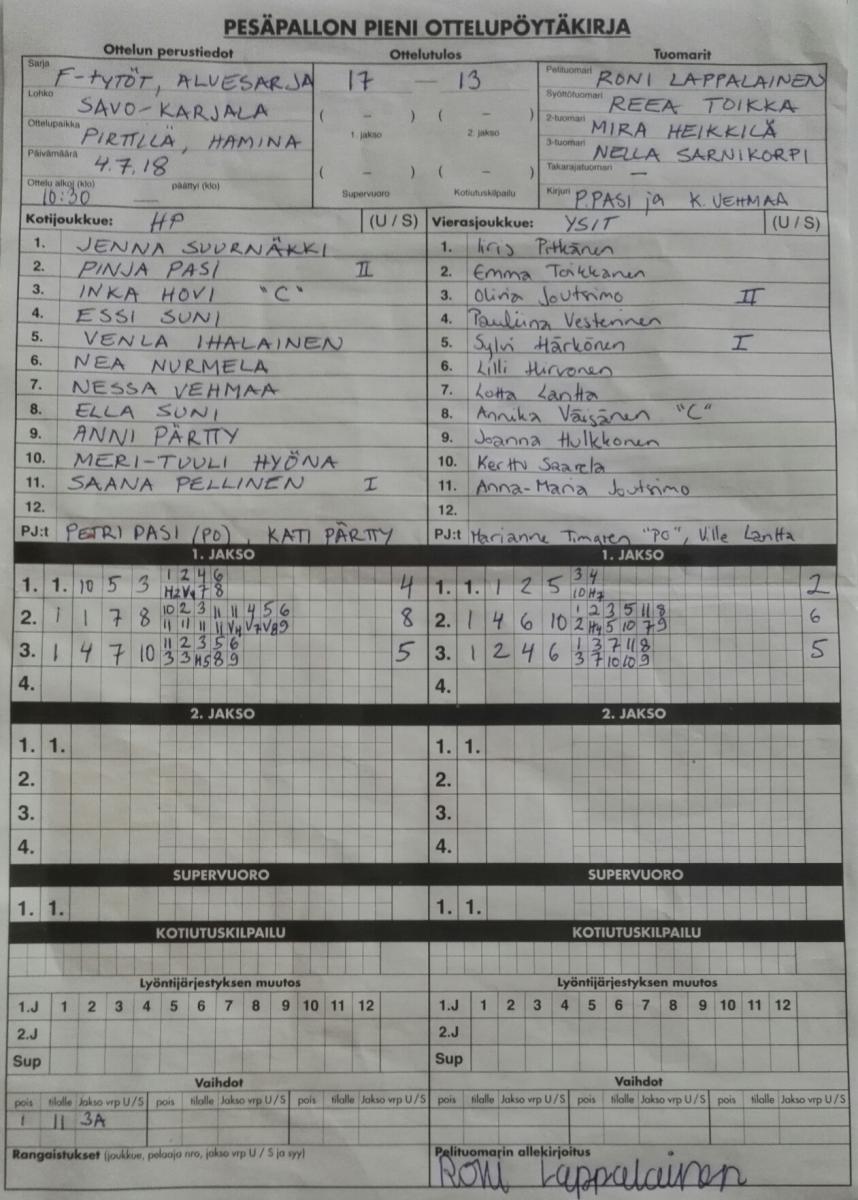 PESÄPALLON PIENI OTTELUPÖYTÄKIRJA
Ottelun perustiedot Ottelutulos Tuomarit
Sarja F-TYTÖT, ALUESARJA 17 — 13 Pelituomari RONI LAPPALAINEN
Lohko SAVO-KARJALA ( – ) ( – ) Syöttötuomari REEA TOIKKA
Ottelupaikka PIRTILLÄ, HAMINA 1. jakso 2. jakso 2-tuomari MIRA HEIKKILÄ
3-tuomari NELLA SARNIKORPI
Päivämäärä 4.7.18 ( – ) ( – ) Takarajatuomari —
Ottelu alkoi (klo) 10:30 päättyi (klo) — Supervuoro Kotiutuskilpailu Kirjuri P.PASI ja K.VEHMAA
Kotijoukkue: HP (U / S) Vierasjoukkue: YSIT (U / S)
1. JENNA SUURNÄKKI 1. Iiris Pitkänen
2. PINJA PASI II 2. Emma Toikkanen
3. INKA HOVI "C" 3. Olivia Joutsimo II
4. ESSI SUNI 4. Pauliina Vesterinen
5. VENLA IHALAINEN 5. Sylvi Härkönen I
6. NEA NURMELA 6. Lilli Hirvonen
7. NESSA VEHMAA 7. Lotta Lantta
8. ELLA SUNI 8. Annika Väisänen "C"
9. ANNI PÄRTTY 9. Joanna Hulkkonen
10. MERI-TUULI HYÖNA 10. Kerttu Saarela
11. SAANA PELLINEN I 11. Anna-Maria Joutsimo
12. 12.
PJ:t PETRI PASI (PO), KATI PÄRTTY PJ:t Marianne "PO", Ville Lantta
1. JAKSO 1. JAKSO
1. 1. 10 5 3 1 2 4 6 4 1. 1. 1 2 5 3 4 2
H2 V4 7 8 10 H7
2. 1 1 7 8 10 2 3 11 11 4 5 6 8 2. 1 4 6 10 1 2 3 5 11 8 6
11 11 11 11 V4 V7 V8 9 2 H4 5 10 7 9
3. 1 4 7 10 11 2 3 5 6 5 3. 1 2 4 6 1 3 7 11 8 5
3 3 H5 8 9 3 7 10 10 9
4. 4.
2. JAKSO 2. JAKSO
1. 1. 1. 1.
2. 2.
3. 3.
4. 4.
SUPERVUORO SUPERVUORO
1. 1. 1. 1.
KOTIUTUSKILPAILU KOTIUTUSKILPAILU
Lyöntijärjestyksen muutos Lyöntijärjestyksen muutos
1.J 1 2 3 4 5 6 7 8 9 10 11 12 1.J 1 2 3 4 5 6 7 8 9 10 11 12
2.J 2.J
Sup Sup
Vaihdot Vaihdot
pois tilalle Jakso vrp U / S pois tilalle Jakso vrp U / S pois tilalle Jakso vrp U / S pois tilalle Jakso vrp U / S pois tilalle Jakso vrp U / S pois tilalle Jakso vrp U / S
1 11 3A
Rangaistukset (joukkue, pelaaja nro, jakso vrp U / S ja syy) Pelituomarin allekirjoitus
Roni Lappalainen